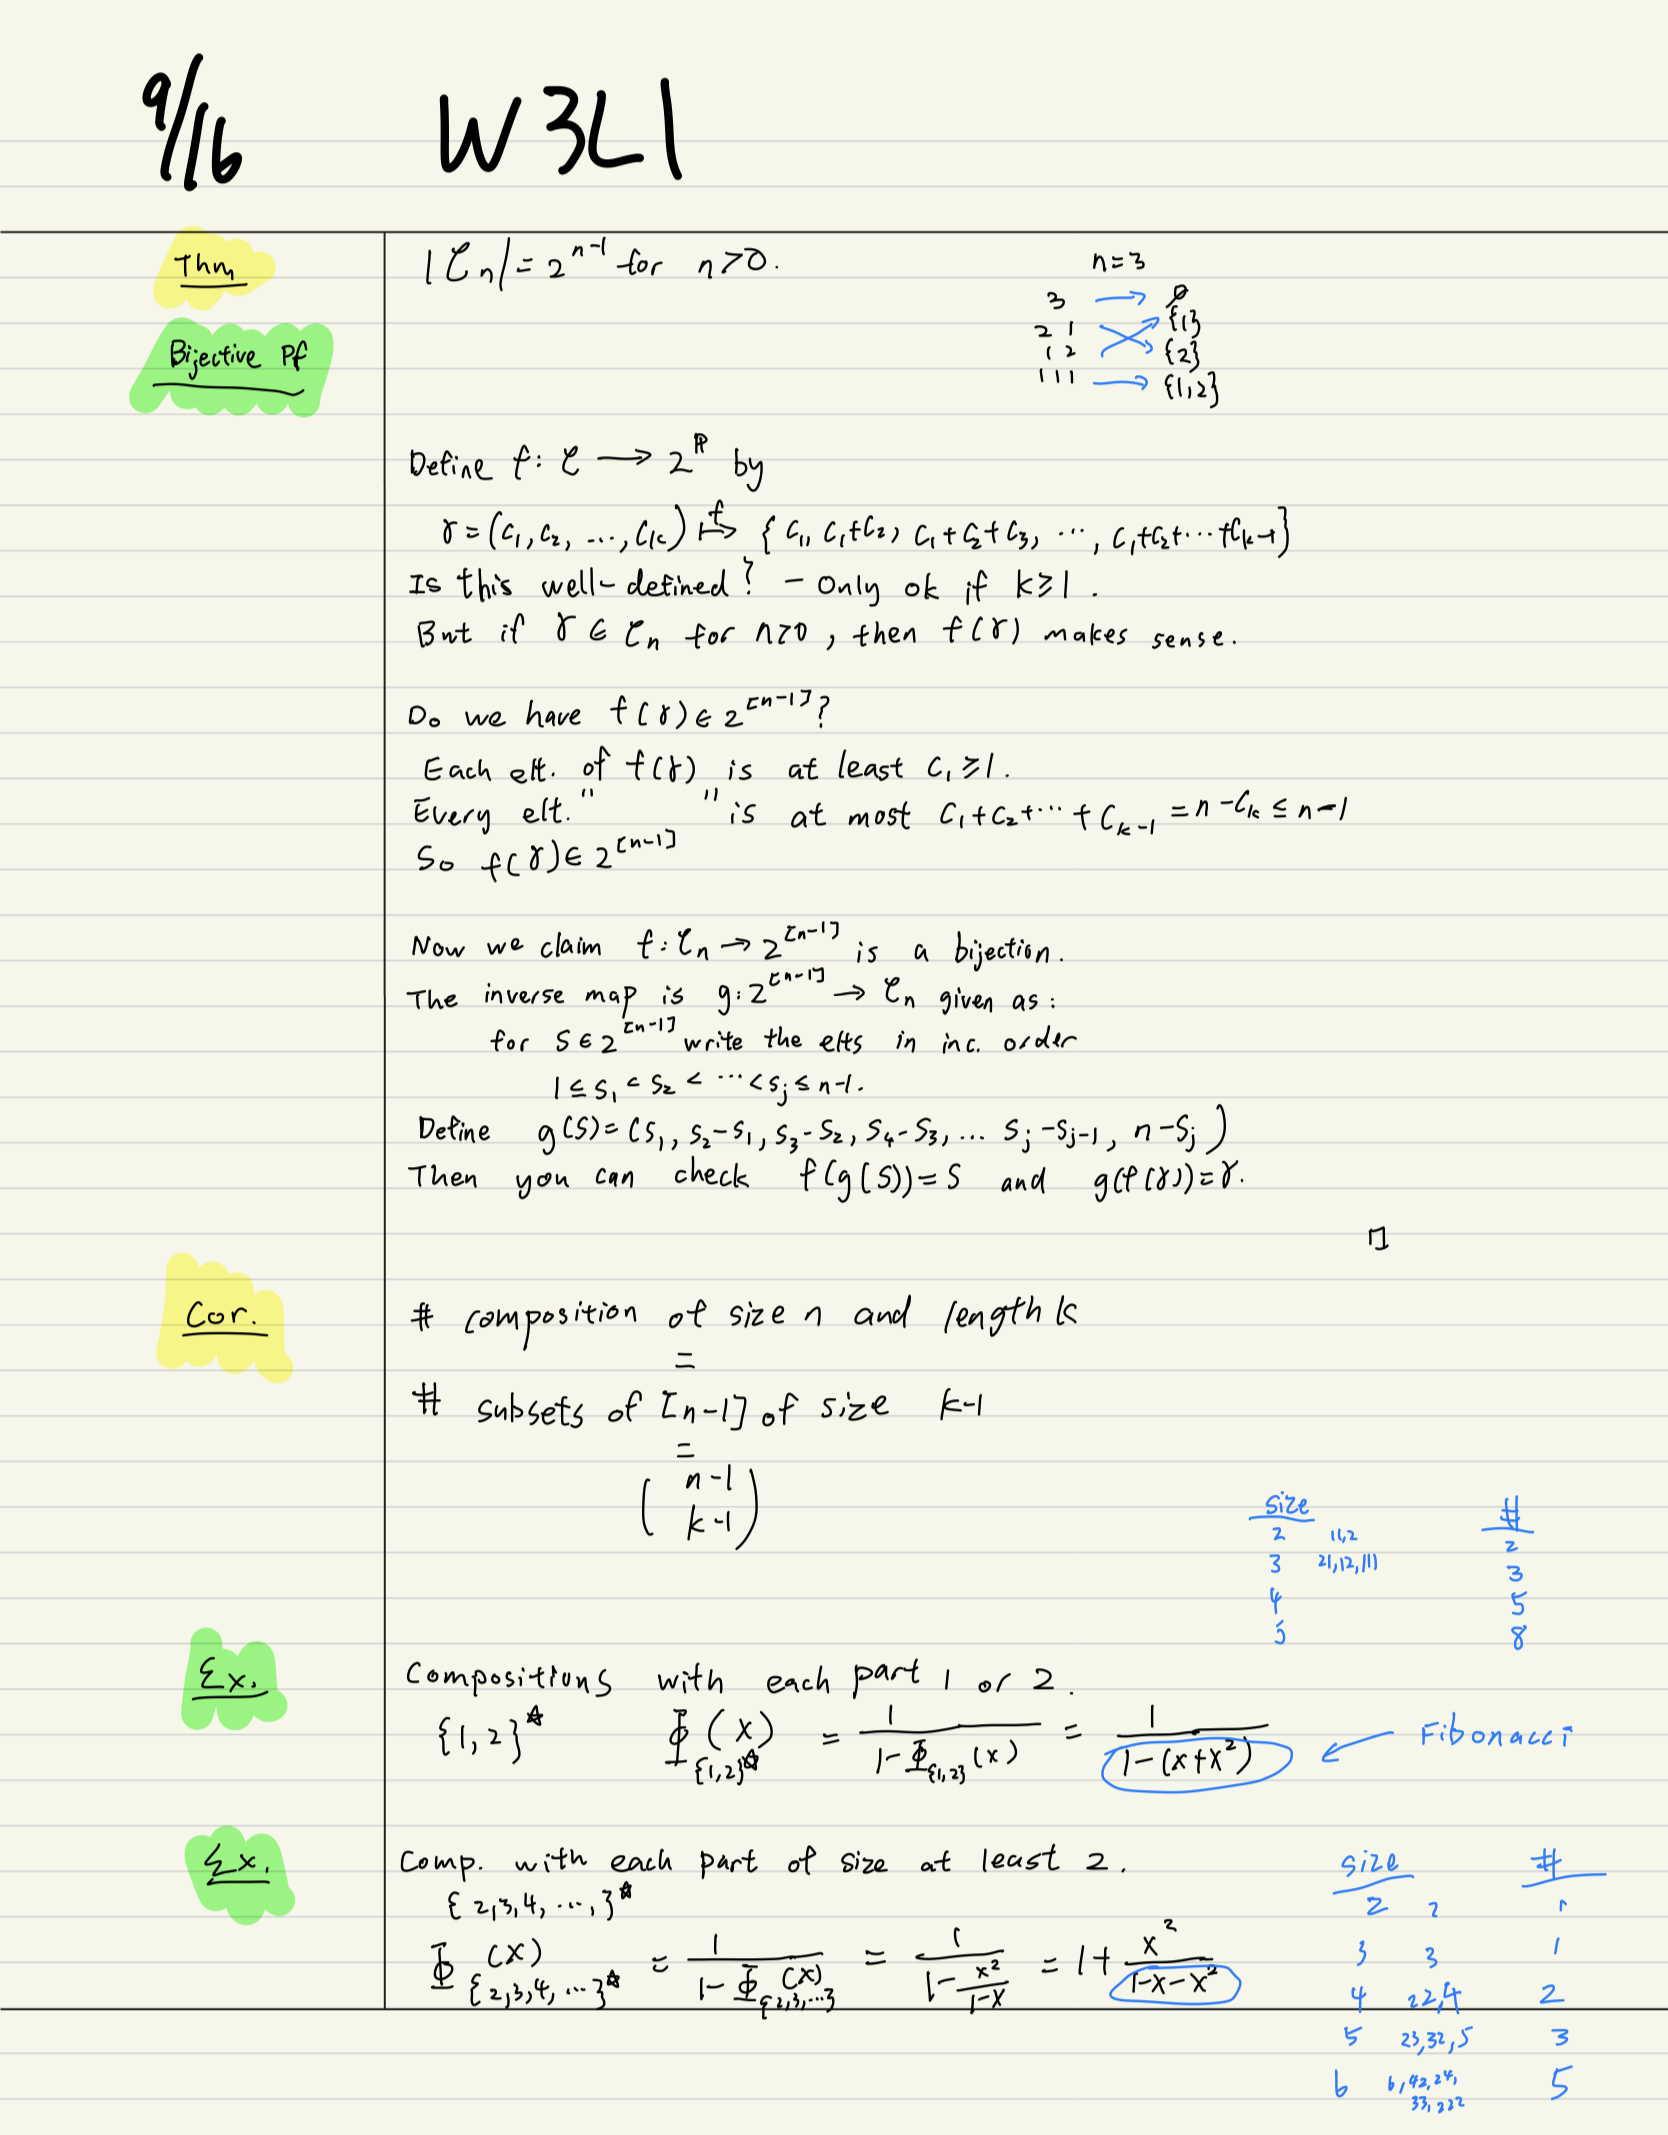 9/16 W3L1
Thm |𝒞ₙ| = 2ⁿ⁻¹ for n>0.
n=3
3 → ∅
2 1 → {2}
1 2 → {1}
1 1 1 → {1,2}
Bijective Pf
Define f: 𝒞 → 2^ℙ by
γ = (c₁, c₂, ..., cₖ) ↦^f { c₁, c₁+c₂, c₁+c₂+c₃, ..., c₁+c₂+...+cₖ₋₁}
Is this well-defined? - Only ok if k≥1.
But if γ ∈ 𝒞ₙ for n>0, then f(γ) makes sense.
Do we have f(γ) ∈ 2^[n-1]?
Each elt. of f(γ) is at least c₁ ≥ 1.
Every elt. " " is at most c₁+c₂+...+cₖ₋₁ = n-cₖ ≤ n-1
So f(γ) ∈ 2^[n-1]
Now we claim f: 𝒞ₙ → 2^[n-1] is a bijection.
The inverse map is g: 2^[n-1] → 𝒞ₙ given as:
for S ∈ 2^[n-1] write the elts in inc. order
1 ≤ s₁ < s₂ < ... < sⱼ ≤ n-1.
Define g(S) = (s₁, s₂-s₁, s₃-s₂, s₄-s₃, ... sⱼ-sⱼ₋₁, n-sⱼ)
Then you can check f(g(S))=S and g(f(γ))=γ.
□
Cor. # composition of size n and length k
=
# subsets of [n-1] of size k-1
=
(n-1
k-1)
size #
2 11,2 2
3 21,12,111 3
4 5
5 8
Ex. Compositions with each part 1 or 2.
{1,2}* Φ_{1,2}*(x) = 1/(1-Φ_{1,2}(x)) = 1/(1-(x+x²)) ← Fibonacci
Ex. Comp. with each part of size at least 2.
{2,3,4,...,}*
Φ_{2,3,4,...}*(x) = 1/(1-Φ_{2,3,...}(x)) = 1/(1-x²/(1-x)) = 1+x²/(1-x-x²)
size #
2 2 1
3 3 1
4 22,4 2
5 23,32,5 3
6 6,42,24, 5
33,222